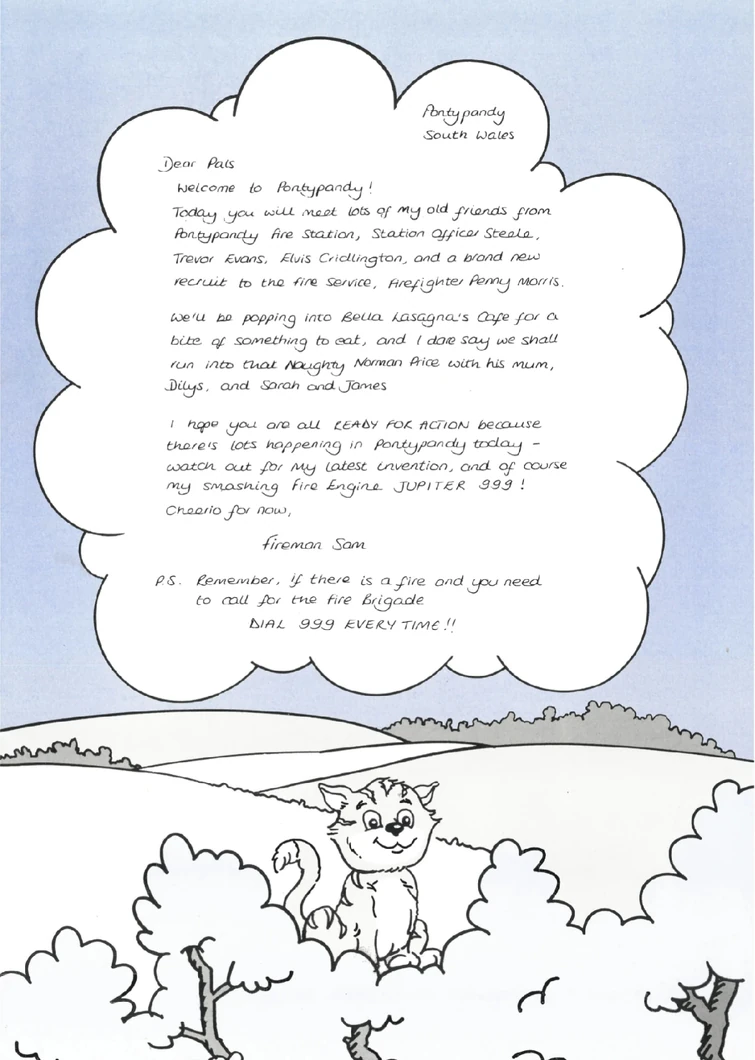 Pontypandy
South Wales
Dear Pals
Welcome to Pontypandy!
Today you will meet lots of my old friends from
Pontypandy Fire Station, Station Officer Steele,
Trevor Evans, Elvis Cridlington, and a brand new
recruit to the fire service, Firefighter Penny Morris.
We'll be popping into Bella Lasagna's Cafe for a
bite of something to eat, and I dare say we shall
run into that Naughty Norman Price with his mum,
Dilys, and Sarah and James
I hope you are all READY FOR ACTION because
there's lots happening in Pontypandy today -
watch out for my latest invention, and of course
my smashing Fire Engine JUPITER 999!
Cheerio for now,
Fireman Sam
P.S. Remember, if there is a fire and you need
to call for the Fire Brigade
DIAL 999 EVERY TIME!!